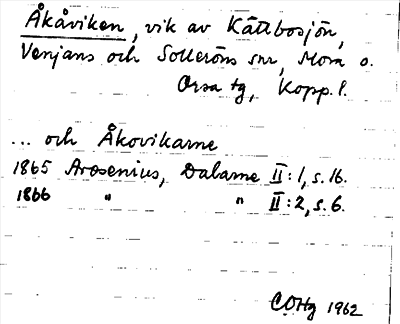 Åkåviken, vik av Kättbosjön,
Venjans och Solleröns snr, Mora o.
Orsa tg, Kopp. l.
... och Åkovikarne
1865 Arosenius, Dalarne II:1, s. 16.
1866 " " II:2, s. 6.
COHg 1962